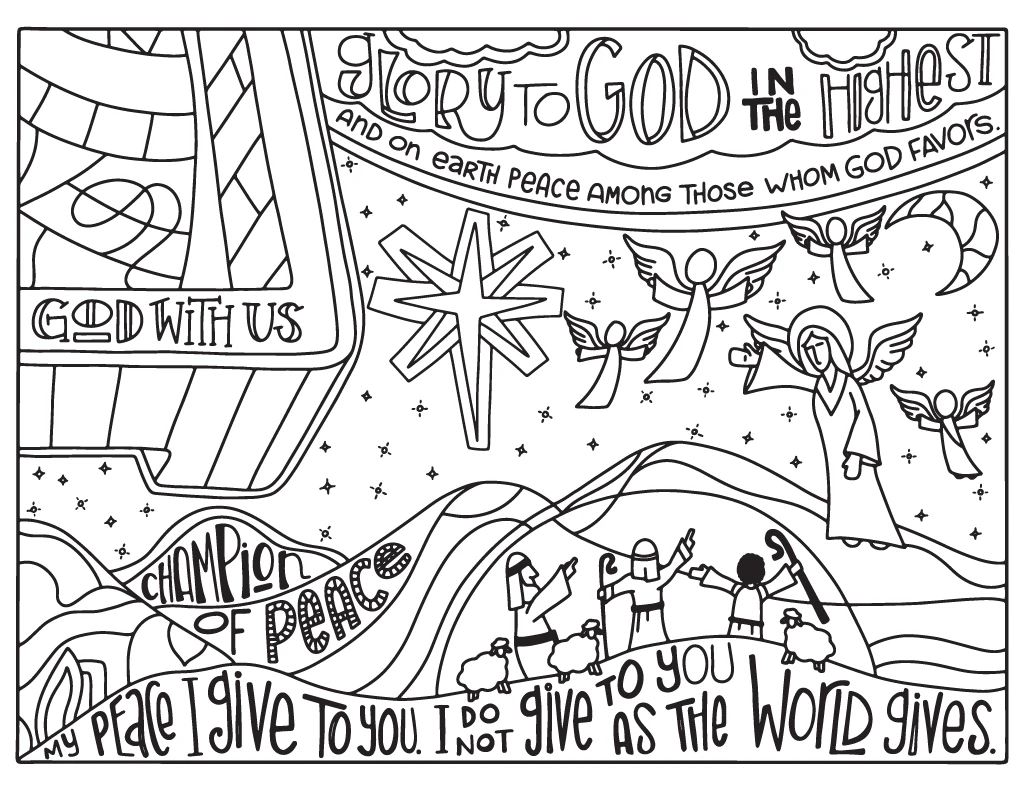 GLORY TO GOD IN THE HIGHEST
AND ON EARTH PEACE AMONG THOSE WHOM GOD FAVORS.
GOD WITH US
CHAMPION
OF PEACE
MY PEACE I GIVE TO YOU. I DO NOT GIVE TO YOU AS THE WORLD GIVES.